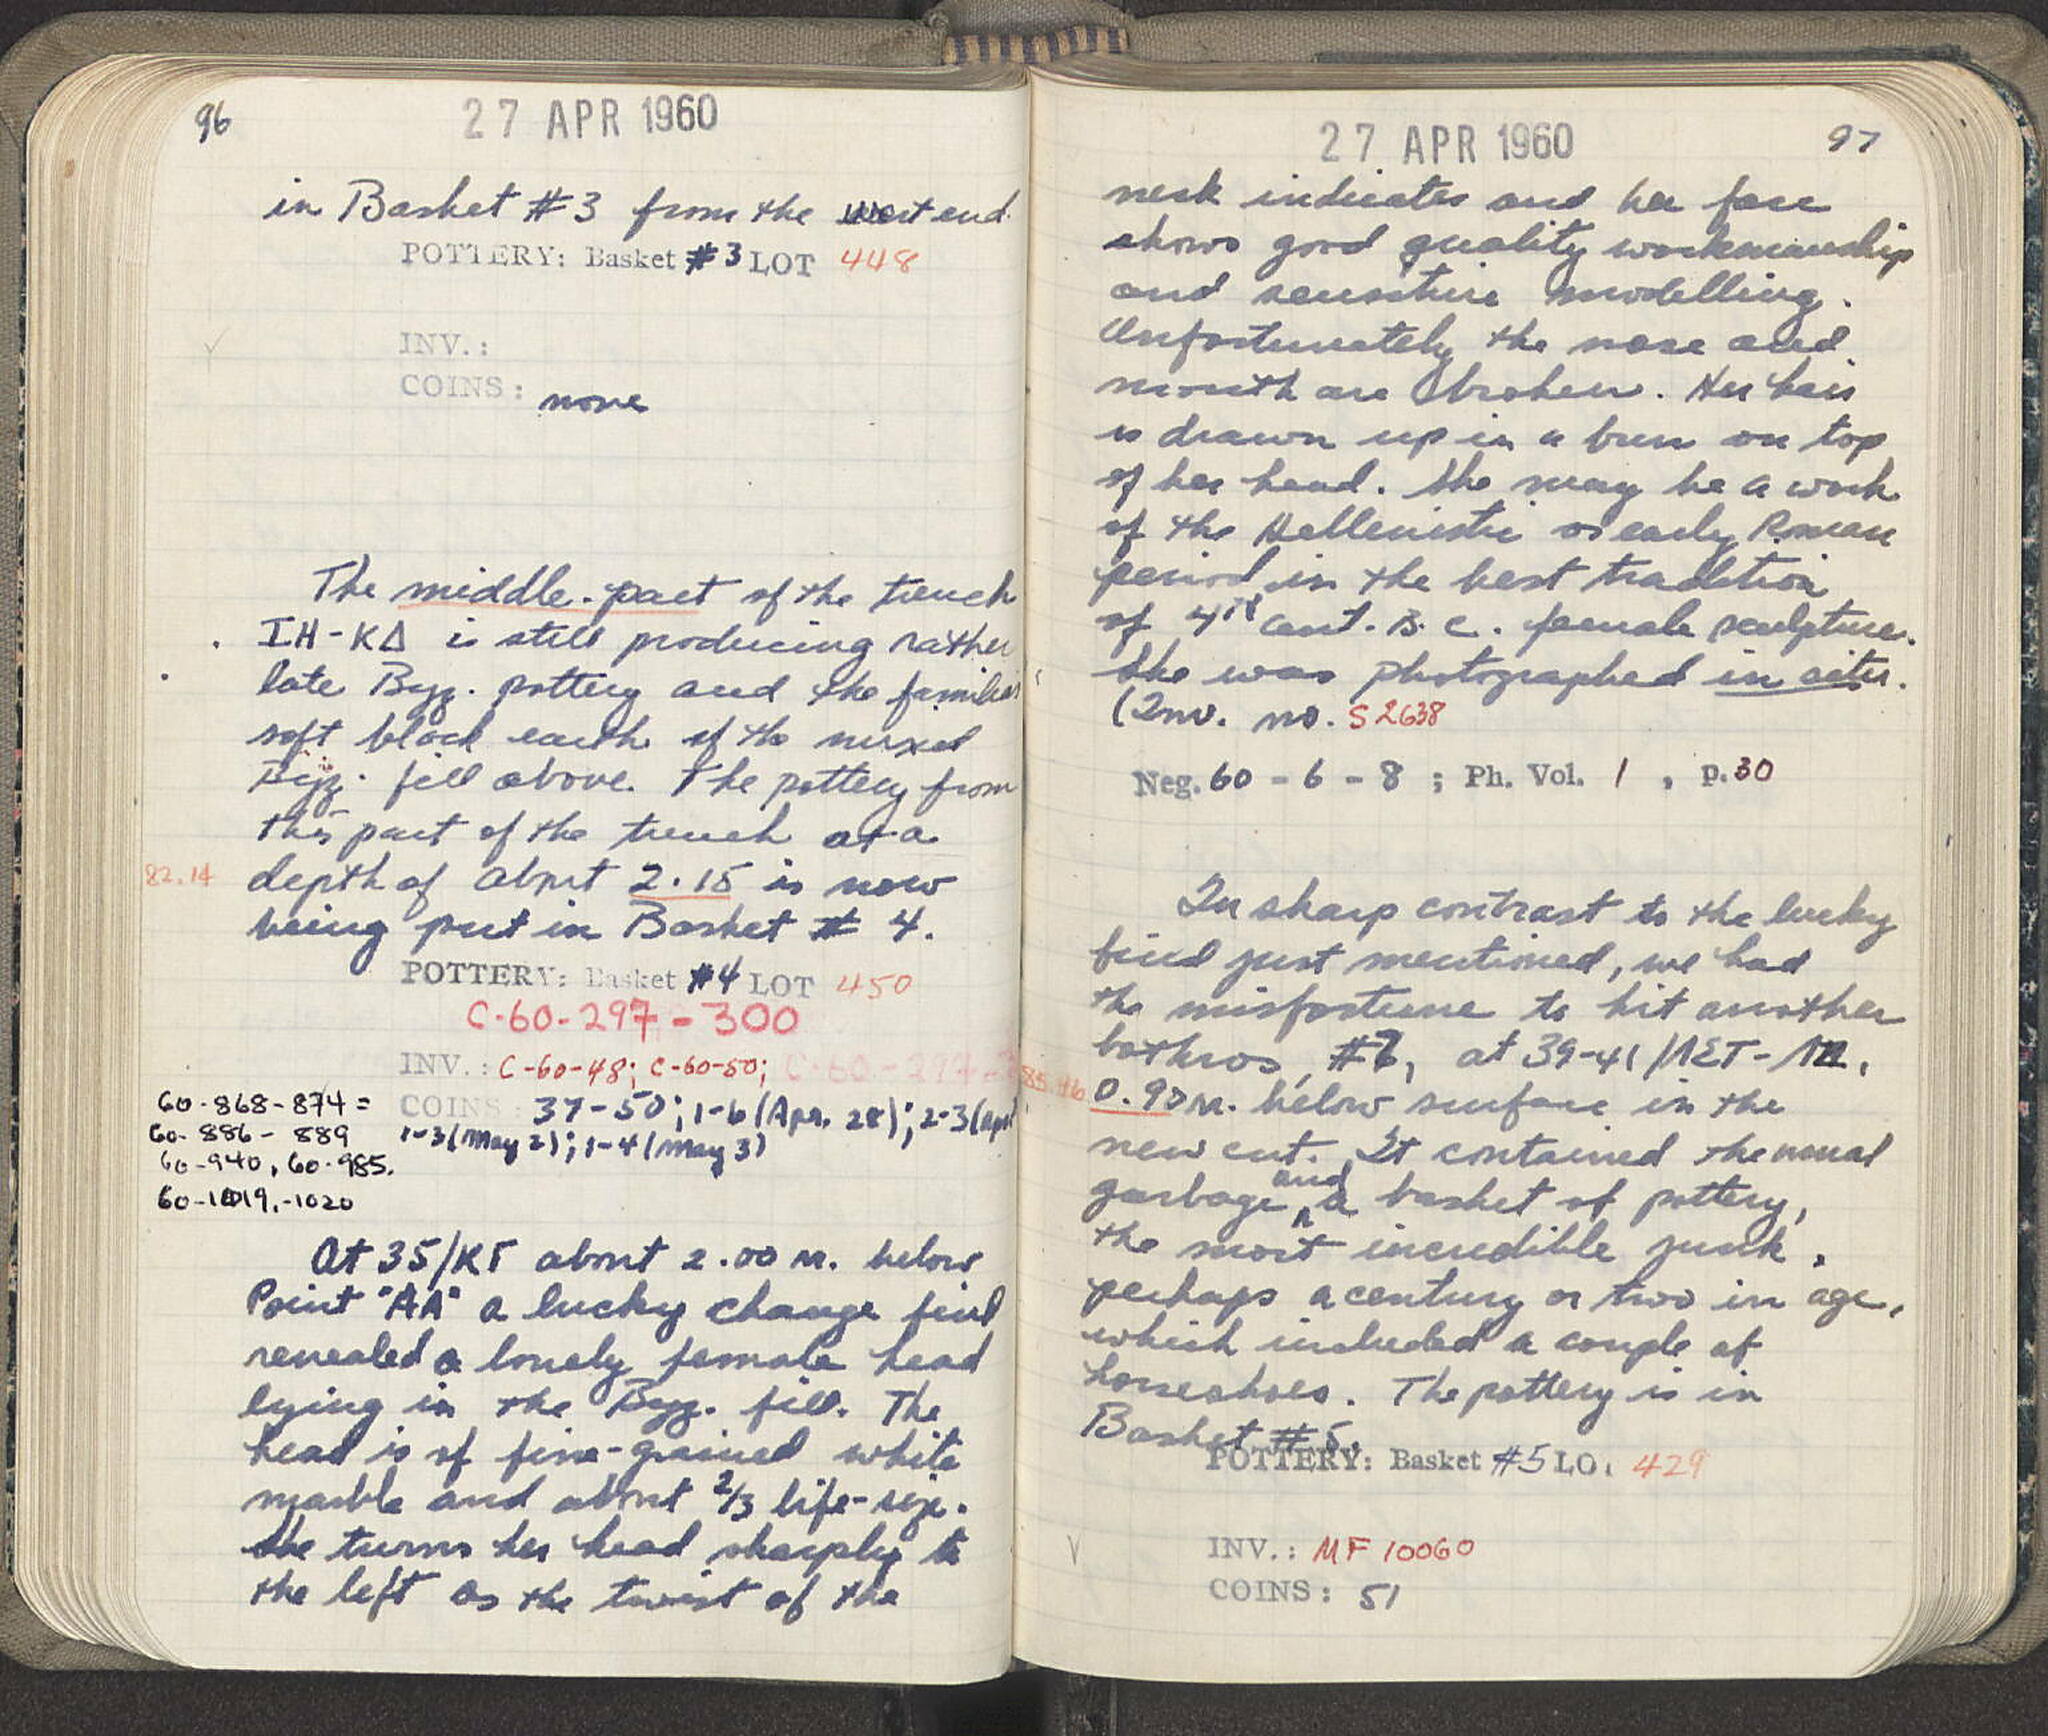 96
27 APR 1960
in Basket #3 from the west end
POTTERY: Basket #3 LOT 448
INV.:
COINS: none
The middle part of the trench
IH-KΔ is still producing rather
late Byz. pottery and the familiar
soft black earth of the mixed
Byz. fill above. The pottery from
this part of the trench at a
82.14 depth of about 2.15 is now
being put in Basket # 4.
POTTERY: Basket #4 LOT 450
C-60-297-300
INV.: C-60-48; C-60-50; C-60-297-
60-868-874 = COINS: 37-50; 1-6 (Apr. 28); 2-3 (Apr
60-886-889 1-3 (May 2); 1-4 (May 3)
60-940, 60-985.
60-1019,-1020
At 35/KΓ about 2.00 M. below
Point "AA" a lucky change find
revealed a lonely female head
lying in the Byz. fill. The
head is of fine-grained white
marble and about 2/3 life-size.
She turns her head sharply to
the left as the twist of the
27 APR 1960
97
neck indicates and her face
shows good quality workmanship
and sensitive modelling.
Unfortunately the nose and
mouth are broken. Her hair
is drawn up in a bun on top
of her head. She may be a work
of the Hellenistic or early Roman
period in the best tradition
of 4th cent. B.C. female sculpture.
She was photographed in situ.
(Inv. no. S 2638
Neg. 60-6-8; Ph. Vol. 1, p. 30
In sharp contrast to the lucky
find just mentioned, we had
the misfortune to hit another
bothros, at 39-41/
85.46 0.90 M. below surface in the
new cut. It contained the usual
garbage and a basket of pottery,
the most incredible junk,
perhaps a century or two in age,
which included a couple of
horseshoes. The pottery is in
Basket #5.
POTTERY: Basket #5 LO. 429
INV.: MF 10060
COINS: 51